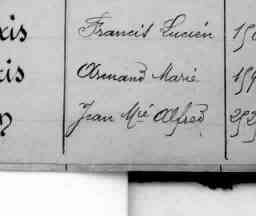 xis Francis Lucien
cis Armand Marie
Jean Mie Alfred 292